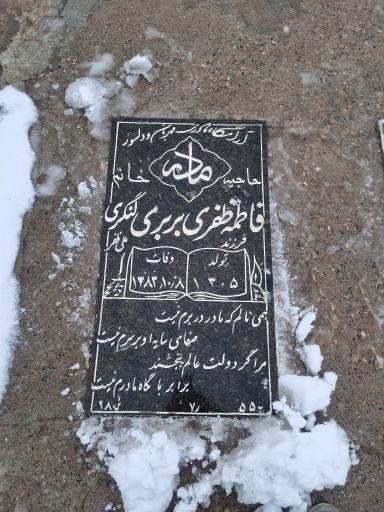 آرامگاه مادری مهربان و دلسوز
مادر
حاجیه خانم
فاطمه ظفری بربری لنگری
فرزند علی ظفر
تولد وفات
۱۳۰۵ ۱۳۸۳،۱۰/۸
همی نالم که مادر در برم نیست
صفای سایه او بر سرم نیست
مرا گر دولت عالم ببخشند
برابر با نگاه مادرم نیست
۵۵ ۷ ۲۸